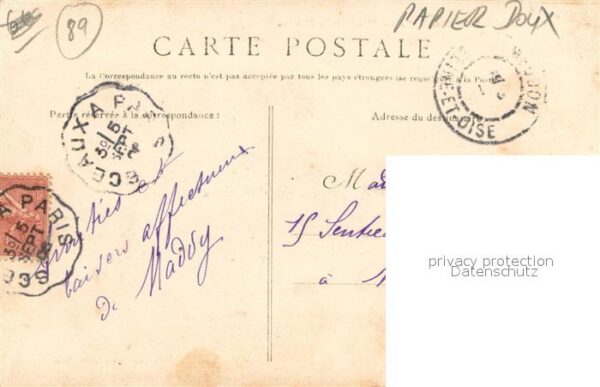 89
PAPIER DOUX
CARTE POSTALE
La Correspondance au recto n'est pas acceptée par tous les pays étrangers (se rens
à la Poste
Partie réservée à la correspondance:
Adresse du destinataire
SCEAUX A PARIS
5
SEPT
ET-OISE
A PARIS
5
SEPT
SCE
Amitiés et
baisers affectueux
de Maddy
Mad
15 Sentie
à
privacy protection
Datenschutz